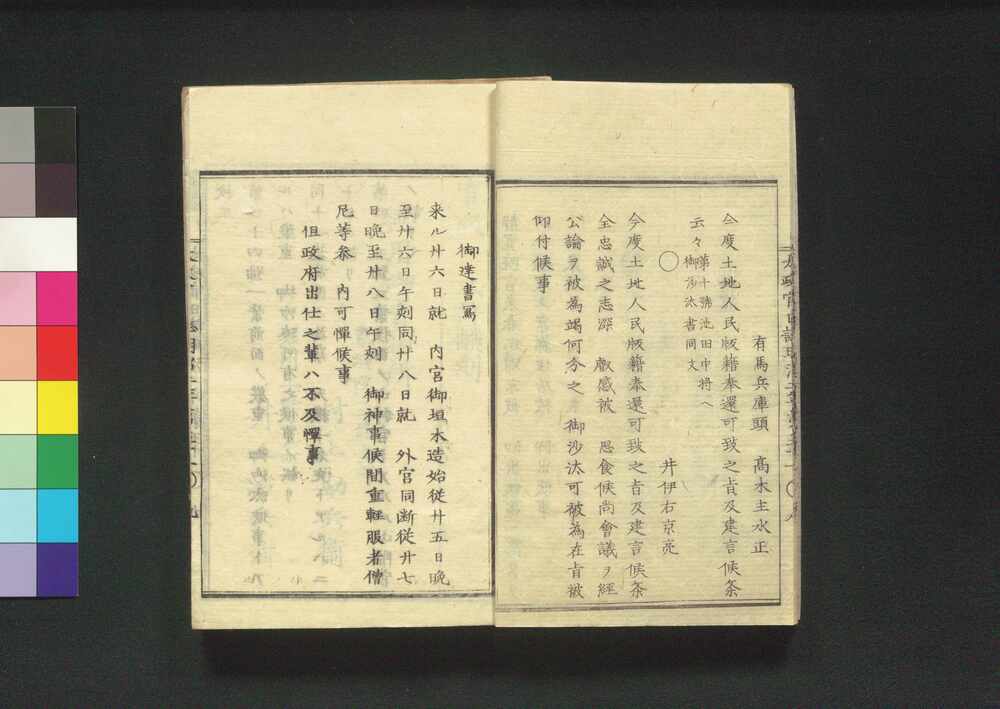 有馬兵庫頭　高木主水正
今度土地人民版籍奉還可致之旨及建言候条
云々　第十號池田中将ヘ
御沙汰書同文
○
井伊右京亮
今度土地人民版籍奉還可致之旨及建言候条
全忠誠之志深　叡感被　思食候尚會議ヲ經
公論ヲ被為竭何分之　御沙汰可被為在旨被
仰付候事
御達書寫
来ル廿六日就　内宮御垣木造始従廿五日晩
至廿六日午刻同廿八日就　外宮同断従廿七
日晩至廿八日午刻　御神事候間重軽服者僧
尼等参　内可憚候事
但政府出仕之輩ハ不及憚事